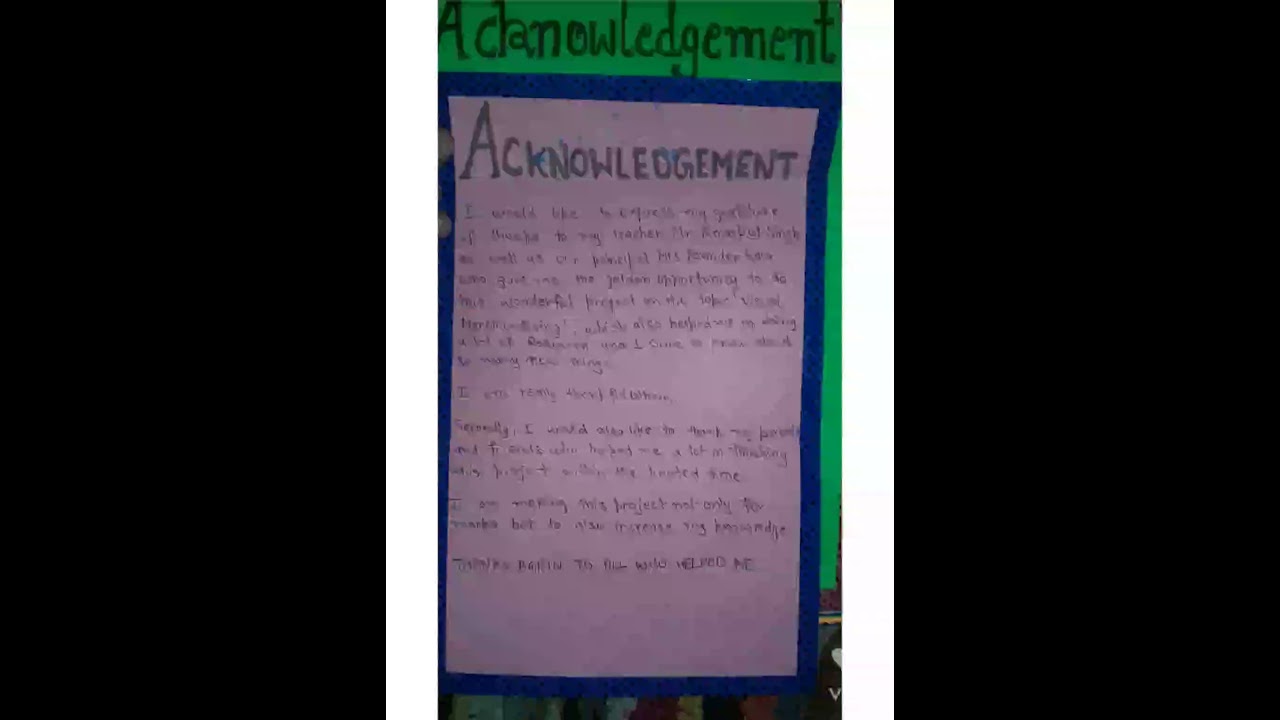 Acknowledgement
ACKNOWLEDGEMENT
I would like to express my gratitude
of thanks to my teacher Mr. Singh
as well as our principal Mrs
who gave me the golden opportunity to do
this wonderful project on the topic "Visual
Merchandising", which also helped me in doing
a lot of Research and I came to know about
so many new things.
I am really thankful to them.
Secondly, I would also like to thank my parents
and friends who helped me a lot in finishing
this project within the limited time.
I am making this project not only for
marks but to also increase my knowledge
THANKS AGAIN TO ALL WHO HELPED ME
V